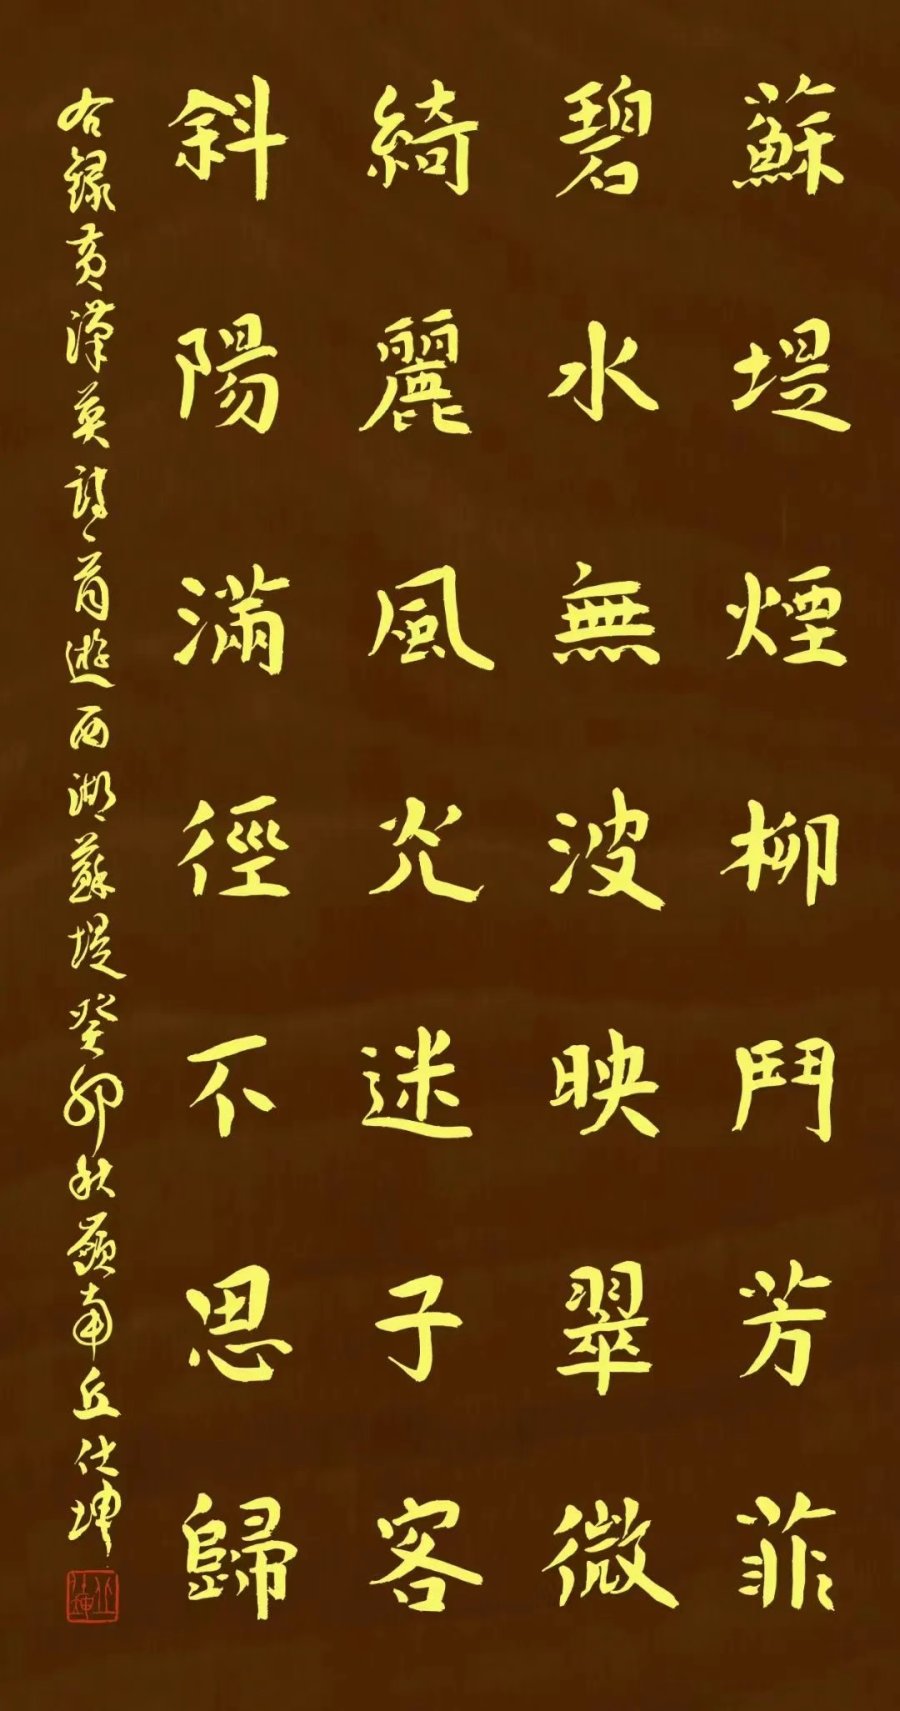 蘇堤煙柳鬥芳菲
碧水無波映翠微
綺麗風光迷子客
斜陽滿徑不思歸
右録黄漢英詩一首遊西湖蘇堤癸卯秋嶺南丘仕坤